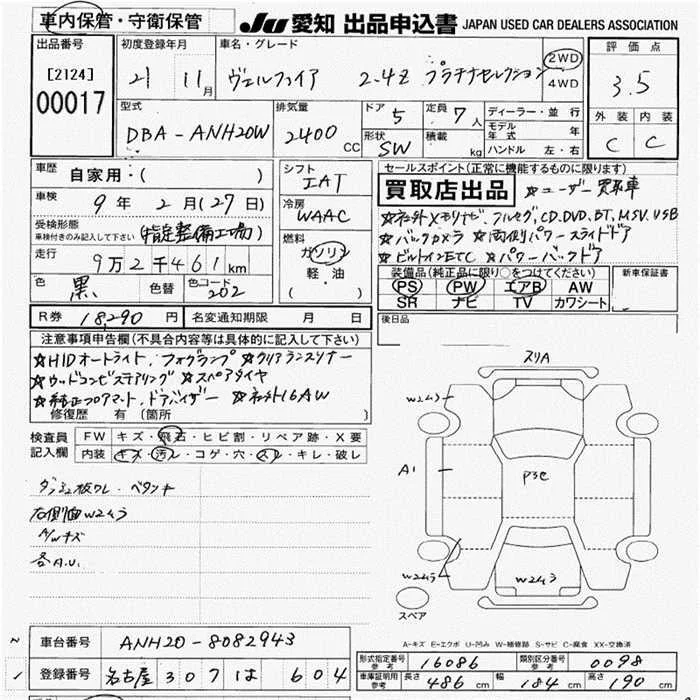 車内保管・守衛保管
JU 愛知 出品申込書 JAPAN USED CAR DEALERS ASSOCIATION
出品番号 [2124] 00017
初度登録年月 21 11月
車名・グレード ヴェルファイア 2.4Z プラチナセレクション 2WD 4WD
評価点 3.5
外装 内装
C C
型式 DBA-ANH20W
排気量 2400 CC
ドア 5 定員 7人
形状 SW 積載 kg
ディーラー・並行
モデル年式 年
ハンドル 左・右
車歴 自家用:( )
車検 9年2月(27日)
受検形態 車検付きのみ記入して下さい (指定整備工場)
走行 9万2千461km
色 黒 色替 色コード 202
シフト IAT
冷房 WAAC
燃料 ガソリン 軽油 ( )
セールスポイント(正常に機能するものに限ります)
買取店出品 ☆ユーザー買取車
☆ネット外メモリナビ、フルセグ、CD、DVD、BT、MSV、USB
☆バックカメラ ☆両側パワースライドドア
☆ビルトインETC ☆パワーバックドア
装備品(純正品に限り○をつけてください)
PS PW エアB AW
SR ナビ TV カワシート
新車保証書
R券 18,290円 名変通知期限 月 日
後日品
注意事項申告欄(不具合内容等は具体的に記入して下さい)
☆HIDオートライト、フォグランプ ☆クリアランスソナー
☆ウッドコンビステアリング ☆スペアタイヤ
☆純正フロアマット、ドアバイザー ☆ネット外16AW
修復歴 有(箇所
検査員記入欄
FW キズ・飛石・ヒビ割・リペア跡・X要
内装 キズ・汚レ・コゲ・穴・スレ・キレ・破レ
ダッシュ板ワレ・ベタツキ
右側面W2ムラ
A/Wキズ
各A.U.
スリA
W2ムラ
A1
P3色
W2ムラ
W2ムラ
スペア
A-キズ E-エクボ U-凹み W-補修跡 S-サビ C-腐食 XX-交換済
車台番号 ANH20-8082943
登録番号 名古屋 307 は 604
形式指定番号 参考 16086 類別区分番号 参考 0098
車庫証明用 参考 長さ 486cm 幅 184cm 高さ 190cm